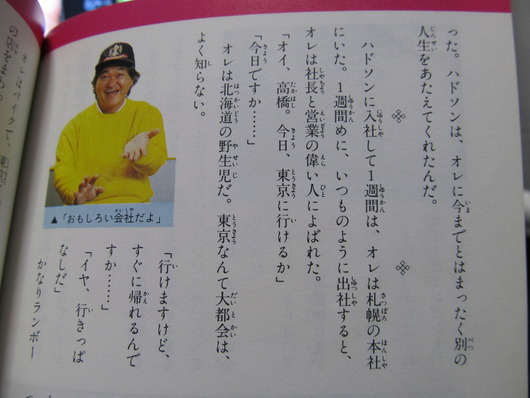 った。ハドソンは、オレに今までとはまったく別の
人生をあたえてくれたんだ。
ハドソンに入社して1週間は、オレは札幌の本社
にいた。1週間めに、いつものように出社すると、
オレは社長と営業の偉い人によばれた。
「オイ、高橋。今日、東京に行けるか」
「今日ですか……」
オレは北海道の野生児だ。東京なんて大都会は、
よく知らない。
「行けますけど、
すぐに帰れるんで
すか……」
「イヤ、行きっぱ
なしだ」
かなりランボー
▲「おもしろい会社だよ」